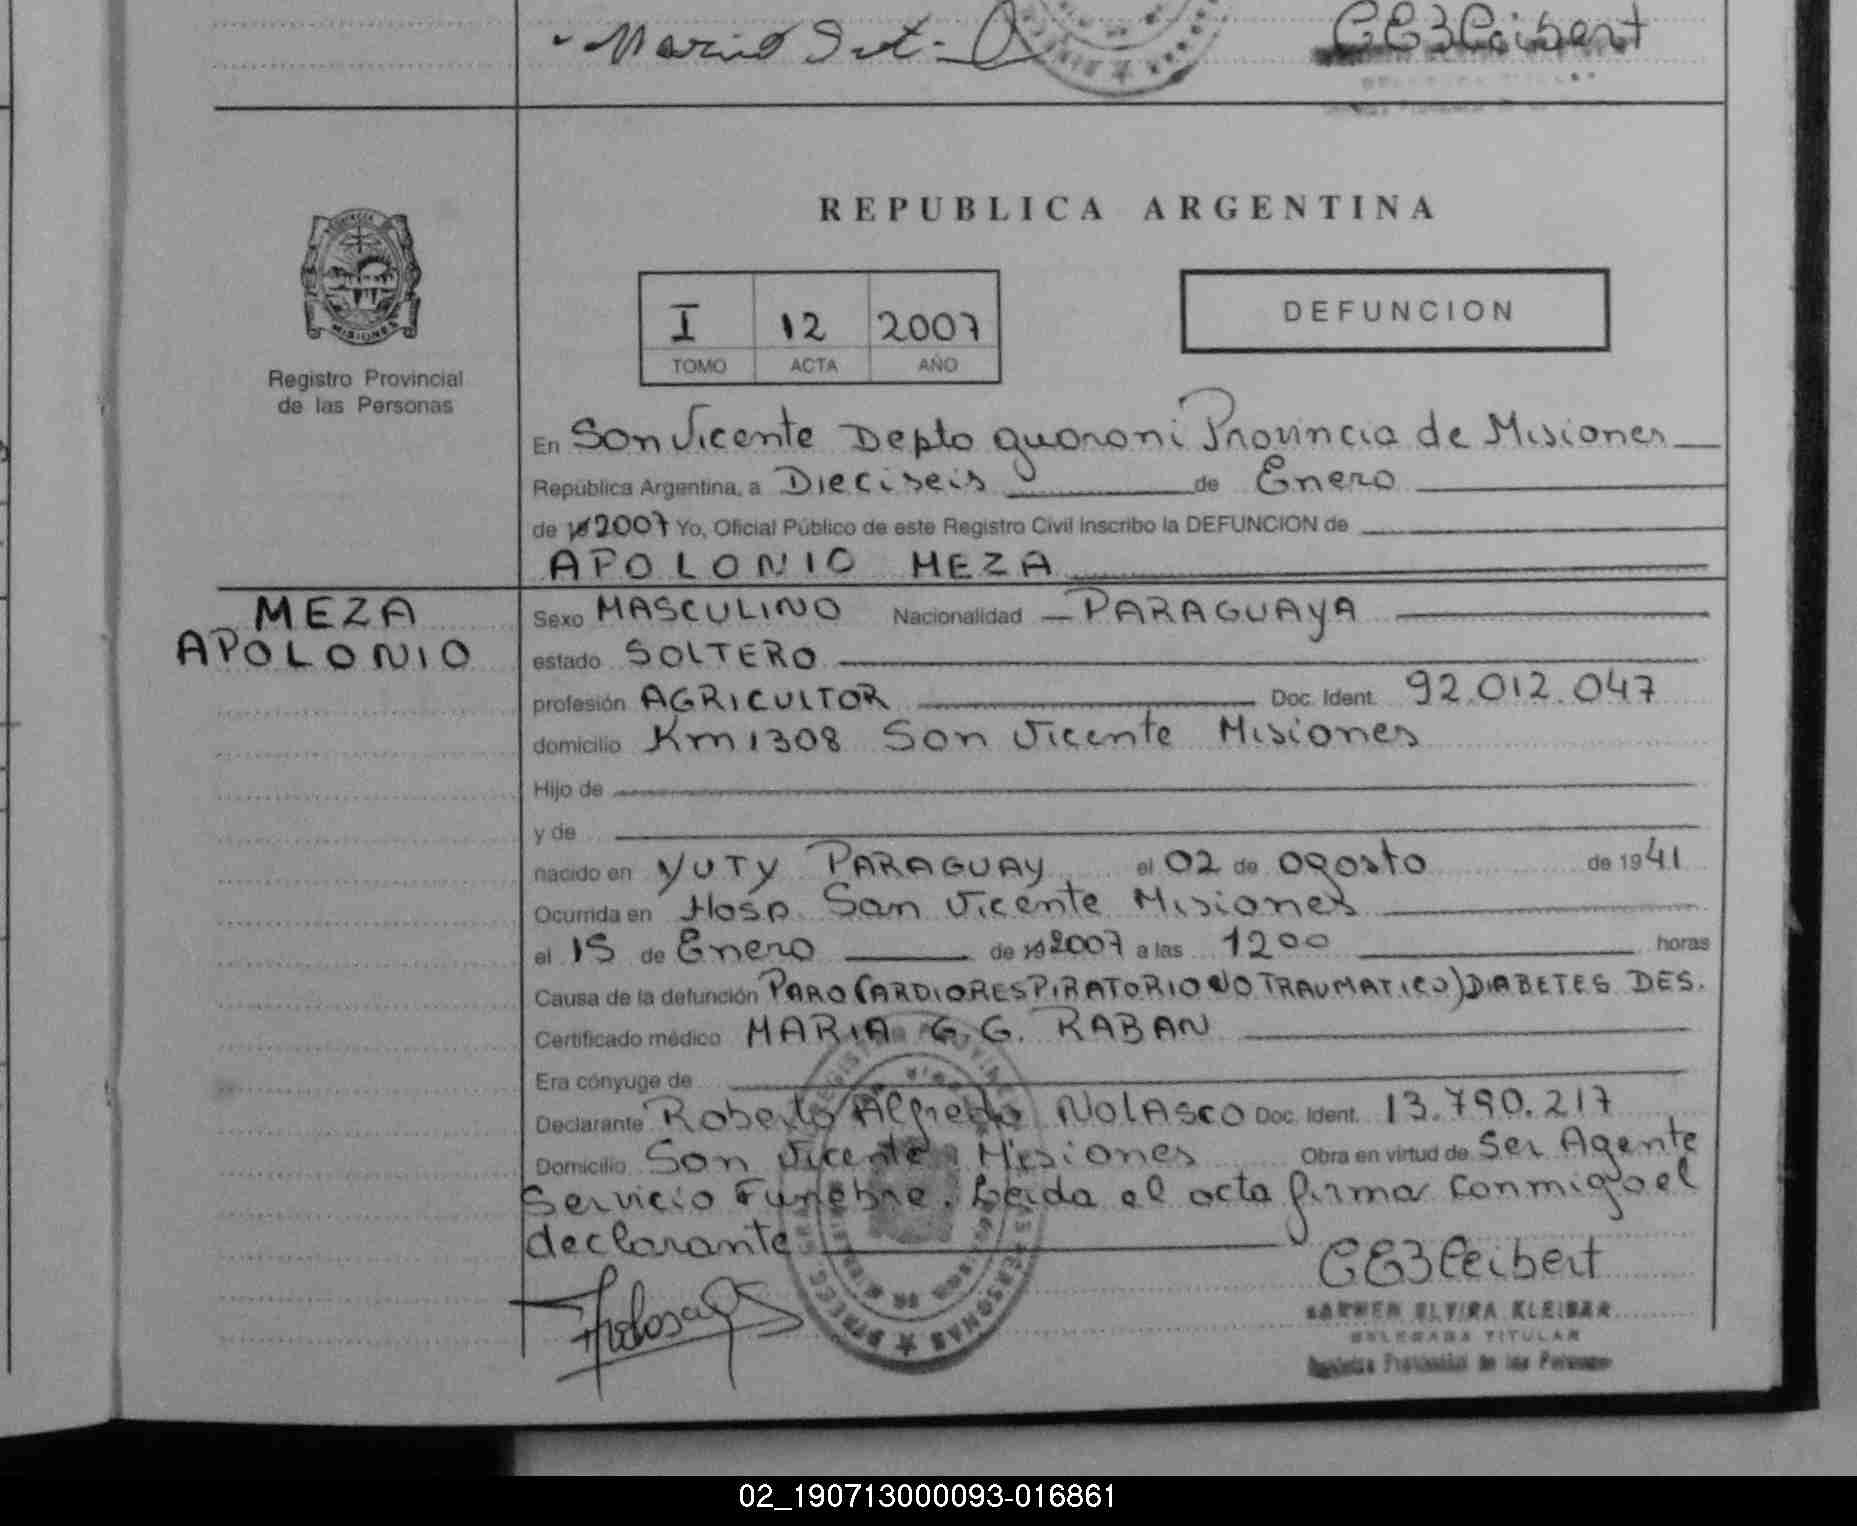 Mario
REPUBLICA ARGENTINA
I 12 2007
TOMO ACTA AÑO
DEFUNCION
MISIONES
Registro Provincial
de las Personas
En San Vicente Depto guarani Provincia de Misiones
República Argentina, a Dieciseis de Enero
de 19 2007 Yo, Oficial Público de este Registro Civil inscribo la DEFUNCION de
APOLONIO MEZA
MEZA
APOLONIO
Sexo MASCULINO Nacionalidad PARAGUAYA
estado SOLTERO
profesión AGRICULTOR Doc. Ident. 92.012.047
domicilio Km 1308 San Vicente Misiones
Hijo de
y de
nacido en YUTY PARAGUAY el 02 de agosto de 1941
Ocurrida en Hosp. San Vicente Misiones
el 15 de Enero de 19 2007 a las 1200 horas
Causa de la defunción PARO CARDIORESPIRATORIO NO TRAUMATICO) DIABETES DES.
Certificado médico MARIA G. G. RABAN
Era cónyuge de
Declarante Roberto Alfredo NOLASCO Doc. Ident. 13.790.217
Domicilio San Vicente Misiones Obra en virtud de Ser Agente
Servicio Funebre. Leida el acta firma conmigo el
declarante
CARMEN ELVIRA KLEIBER
DELEGADA TITULAR
Registro Provincial de las Personas
02_190713000093-016861